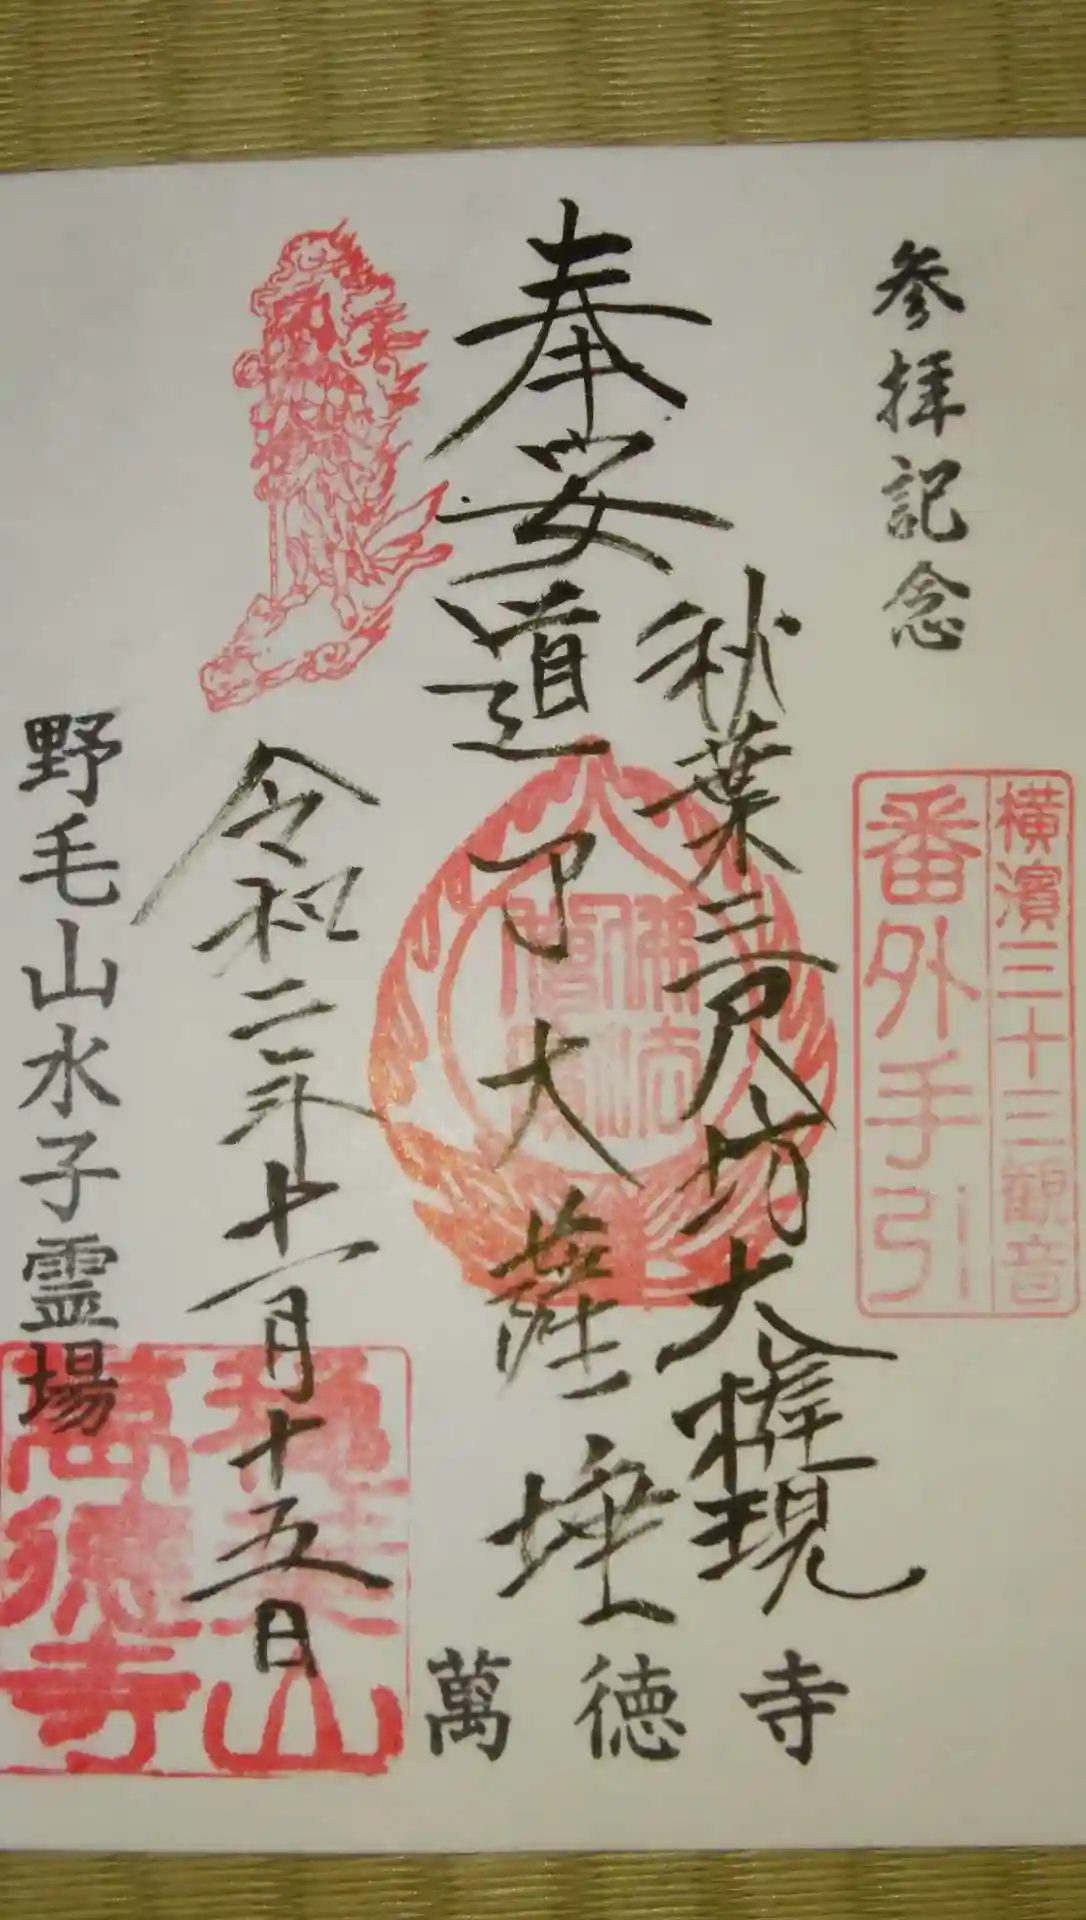 参拝記念
横濱三十三観音
番外手引
秋葉三尺坊大権現
奉安道了大薩埵
佛法僧寶
令和二年十一月十五日
野毛山水子霊場
萬徳寺
萬德寺